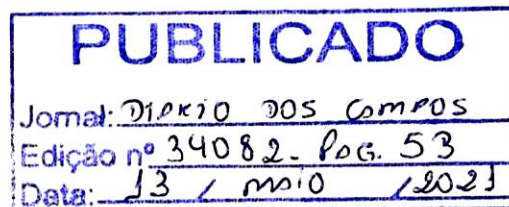 PUBLICADO
Jornal: DIÁRIO DOS CAMPOS
Edição nº 34082 - PÁG. 53
Data: 13 / maio / 2021